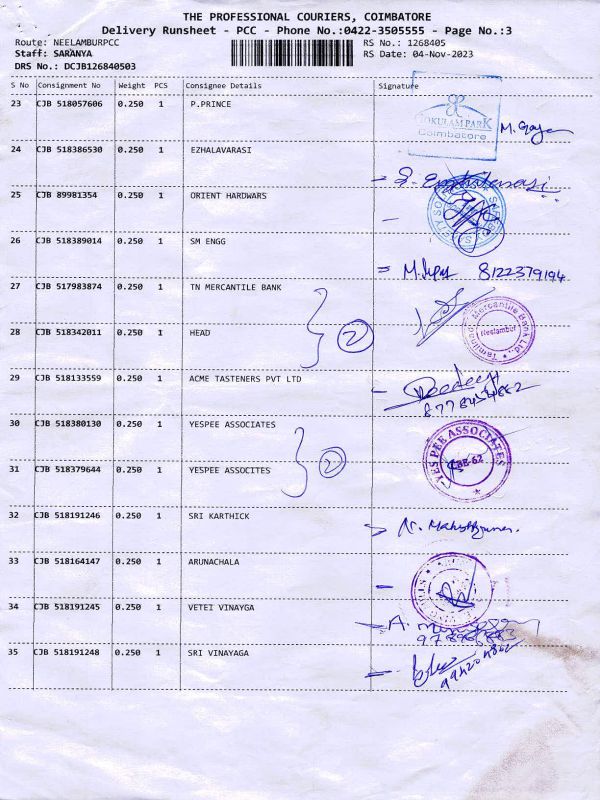 THE PROFESSIONAL COURIERS, COIMBATORE
Delivery Runsheet - PCC - Phone No.:0422-3505555 - Page No.:3
Route: NEELAMBURPCC RS No.: 1268405
Staff: SARANYA RS Date: 04-Nov-2023
DRS No.: DCJB126840503
S No Consignment No Weight PCS Consignee Details Signature
23 CJB 518057606 0.250 1 P.PRINCE
GOKULAM PARK
Coimbatore
24 CJB 518386530 0.250 1 EZHALAVARASI
25 CJB 89981354 0.250 1 ORIENT HARDWARS
26 CJB 518389014 0.250 1 SM ENGG
8122379194
27 CJB 517983874 0.250 1 TN MERCANTILE BANK
2
Tamilnad Mercantile Bank Ltd.
Neelambur
28 CJB 518342011 0.250 1 HEAD
29 CJB 518133559 0.250 1 ACME TASTENERS PVT LTD
30 CJB 518380130 0.250 1 YESPEE ASSOCIATES
2
YES PEE ASSOCIATES
CBE-62
31 CJB 518379644 0.250 1 YESPEE ASSOCITES
32 CJB 518191246 0.250 1 SRI KARTHICK
33 CJB 518164147 0.250 1 ARUNACHALA
34 CJB 518191245 0.250 1 VETEI VINAYGA
35 CJB 518191248 0.250 1 SRI VINAYAGA